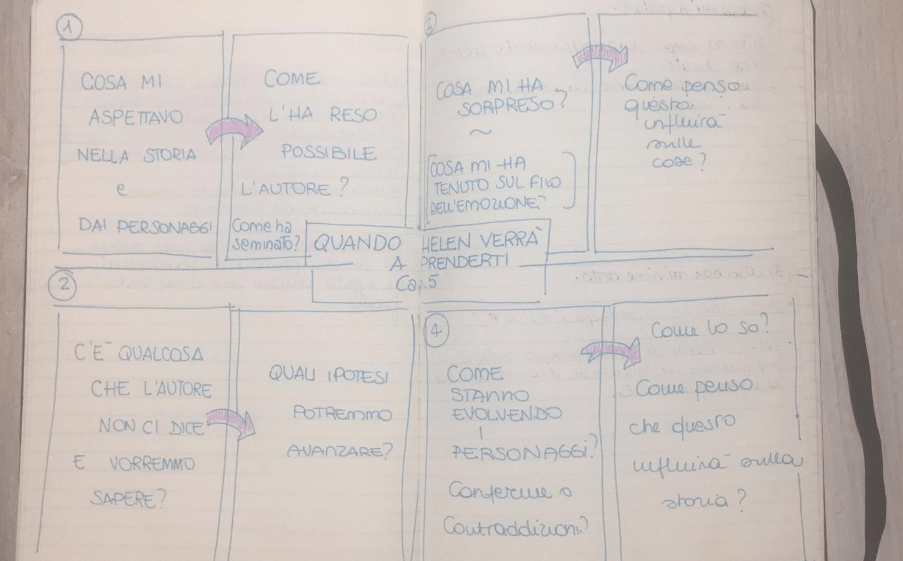 1
COSA MI
ASPETTAVO
NELLA STORIA
e
DAI PERSONAGGI
COME
L'HA RESO
POSSIBILE
L'AUTORE?
Come ha
seminato?
2
C'E' QUALCOSA
CHE L'AUTORE
NON CI DICE
E VORREMMO
SAPERE?
QUALI IPOTESI
POTREMMO
AVANZARE?
QUANDO HELEN VERRÀ
A PRENDERTI
Cap.5
3
COSA MI HA
SORPRESO?
~
COSA MI HA
TENUTO SUL FILO
DELL'EMOZIONE?
Come penso
questo
influirà
sulle
cose?
4
COME
STANNO
EVOLVENDO
I
PERSONAGGI?
Conferme o
Contraddizioni?
Come lo so?
Come penso
che questo
influirà sulla
storia?